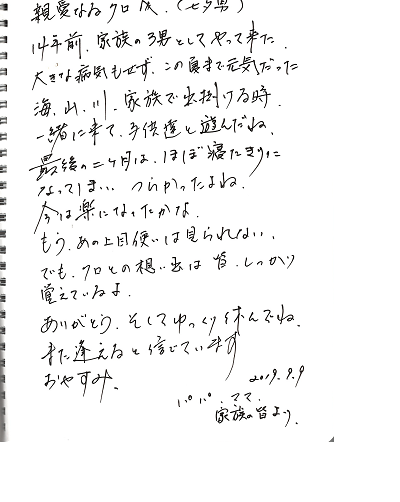 親愛なるクロ殿.(七夕男)
14年前、家族の3男としてやって来た
大きな病気もせず、この夏まで元気だった
海、山、川、家族で出掛ける時、
一緒に来て、子供達と遊んだね、
最後の二ヶ月は、ほぼ寝たきりに
なってしまい つらかったよね、
今は楽になったかな、
もう、あの上目使いは見られない、
でも、クロとの想い出は 皆、しっかり
覚えているよ、
ありがとう、そしてゆっくり休んでね、
また逢えると信じています
おやすみ、
2019.9.9
パパ、ママ、
家族の皆より、